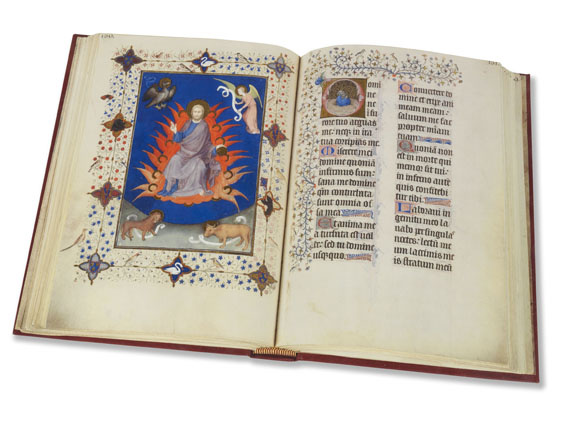 in fu
rore tuo arguas
me: neq; in ira
tua corripias me.
Miserere mei
domine quoniã
infirmus sum
sana me domine
qm̃ conturbata
sunt omnia os
sa mea.
Et anima mea
turbata est ual
de: sed tu domine
usq;quo.
Conuertere do
mine et eripe ani
mam meam:
saluum me fac
propter miam
tuam.
Quoniã non
est in morte qui
memor sit tui:
in inferno autẽ
quis confitebi
tur tibi.
Laboraui in
gemitu meo la
uabo per singulas
noctes: lectũ me
um lacrimis me
is stratum meũ